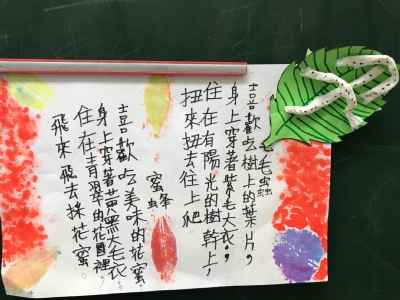 毛毛蟲
喜歡吃樹上的葉片，
身上穿著紫毛大衣，
住在有陽光的樹幹上，
扭來扭去往上爬
蜜蜂
喜歡吃美味的花蜜，
身上穿著黃黑大毛衣
住在青翠的花園裡
飛來飛去採花蜜。